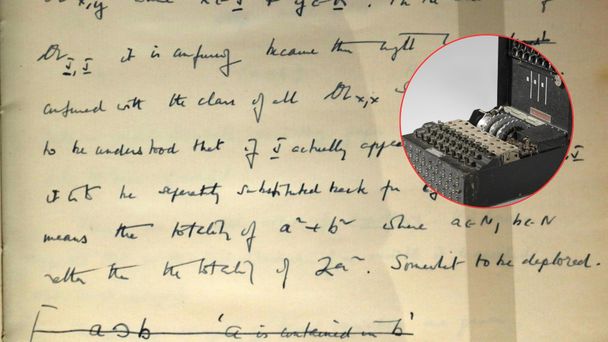 x,y x ∈ y ∈
I,I it is confusing because this might
confused with the class of all x,x
to be understood that if I actually appea
it is to be separately substituted back for
means the totality of a² + b² where a∈N, b∈N
rather than the totality of 2a². Somewhat to be deplored.
a ⊃ b 'a is contained in b'